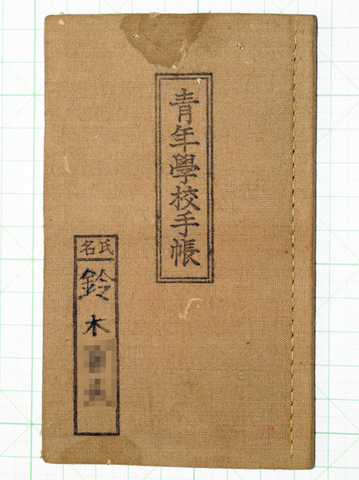 青年學校手帳
氏名
鈴木